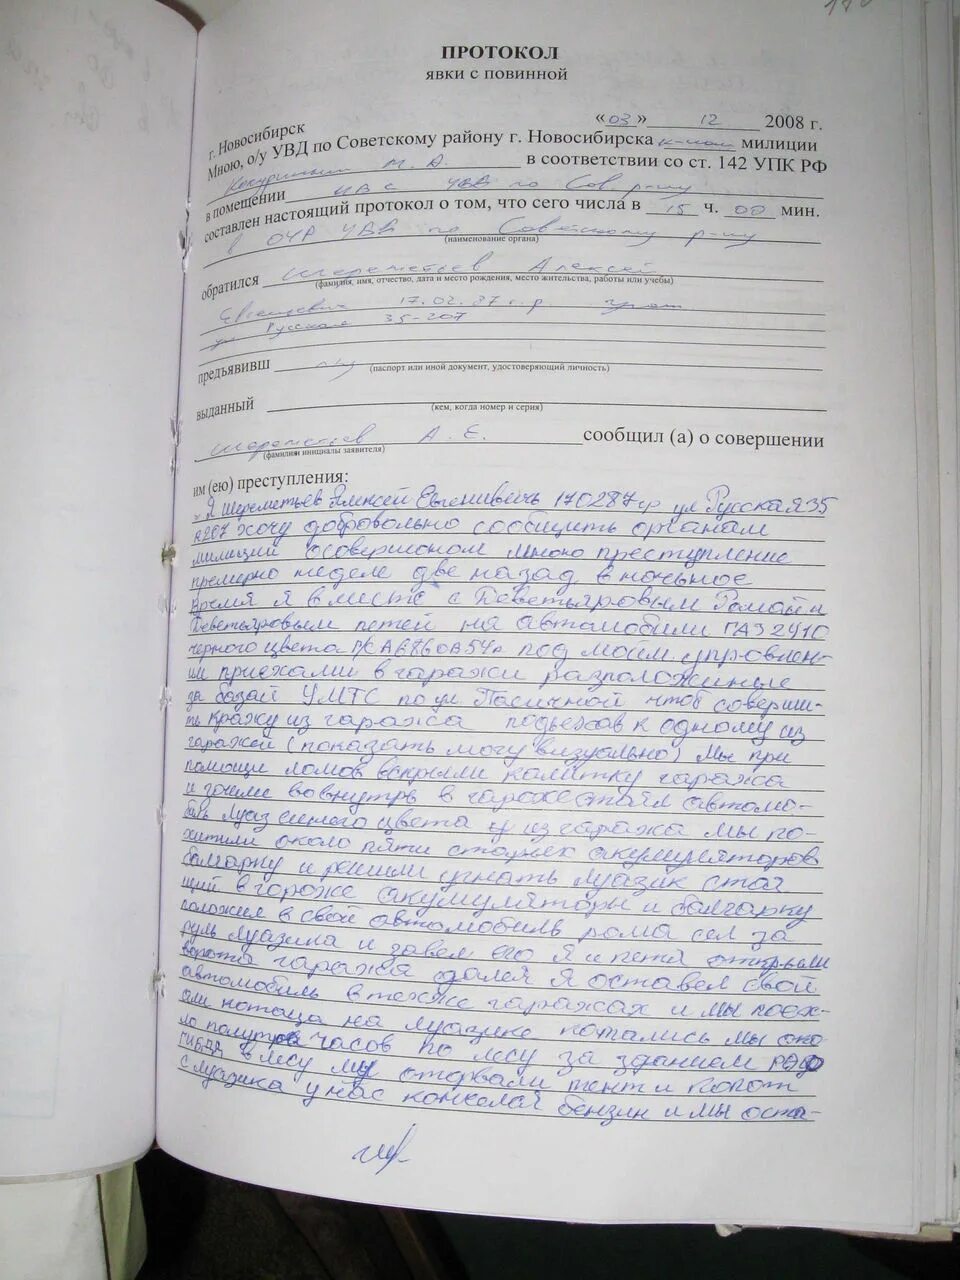 ПРОТОКОЛ
ЯВКИ С ПОВИННОЙ
г. Новосибирск «03» 12 2008 г.
Мною, о/у УВД по Советскому району г. Новосибирска милиции
М. А. в соответствии со ст. 142 УПК РФ
в помещении УВД по Сов. р-ну
составлен настоящий протокол о том, что сего числа в 15 ч. 00 мин.
в УВД по Советскому р-ну
(наименование органа)
обратился Шереметьев Алексей
(фамилия, имя, отчество, дата и место рождения, место жительства, работы или учебы)
Евгеньевич 17.02.87 г.р.
ул Русская 35-207
предъявивш
(паспорт или иной документ, удостоверяющий личность)
выданный
(кем, когда номер и серия)
Шереметьев А. Е. сообщил (а) о совершении
(фамилия инициалы заявителя)
им (ею) преступления:
Я Шереметьев Алексей Евгениевичь 170287гр ул Русская 35
207 хочу добровольно сообщить органам
милиции осовершоном мною преступление
премерно неделе две назад в ночьное
время я вместе с Деветьяровым Ромой и
Деветьяровым петей на автомобили ГАЗ 2410
черного цвета под моим упровлен-
им приехами в гаражи разположеные
за базай УМТС по ул Пасичной чтоб соверши-
ть кражу из гаража подъехав к одному из
гаражей (показать могу визуально) мы при
помощи ломов вскрыли калитку гаража
и зашли вовнутрь в гараже стаял автомо-
биль Луаз синего цвета из гаража мы по-
хитили около пяти акумуляторов
балгарку и решили угнать Луазик стая
щий в гараже акумуляторы и балгарку
положил в свой автомобиль рома сел за
руль Луазика и завел его я и петя открыли
ворота гаража далея я оставел свой
автомобиль в техже гаражах и мы поех-
али на Луазике катались мы око
ло полутра часов по лесу за зданием
ГИБДД в лесу мы оторвали тент и капот
с луазика у нас кончелся бензин и мы оста-